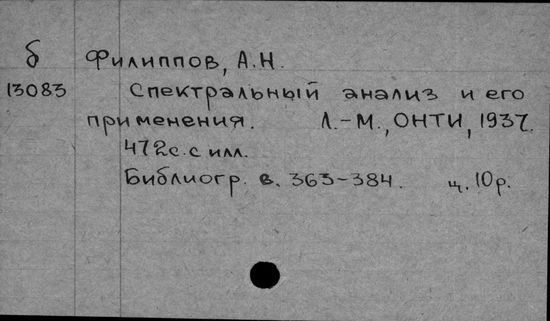 б Филиппов, А.Н.
13083 Спектральный анализ и его
применения. Л.-М., ОНТИ, 1937.
472с. с илл.
Библиогр. в. 363-384. ц. 10р.